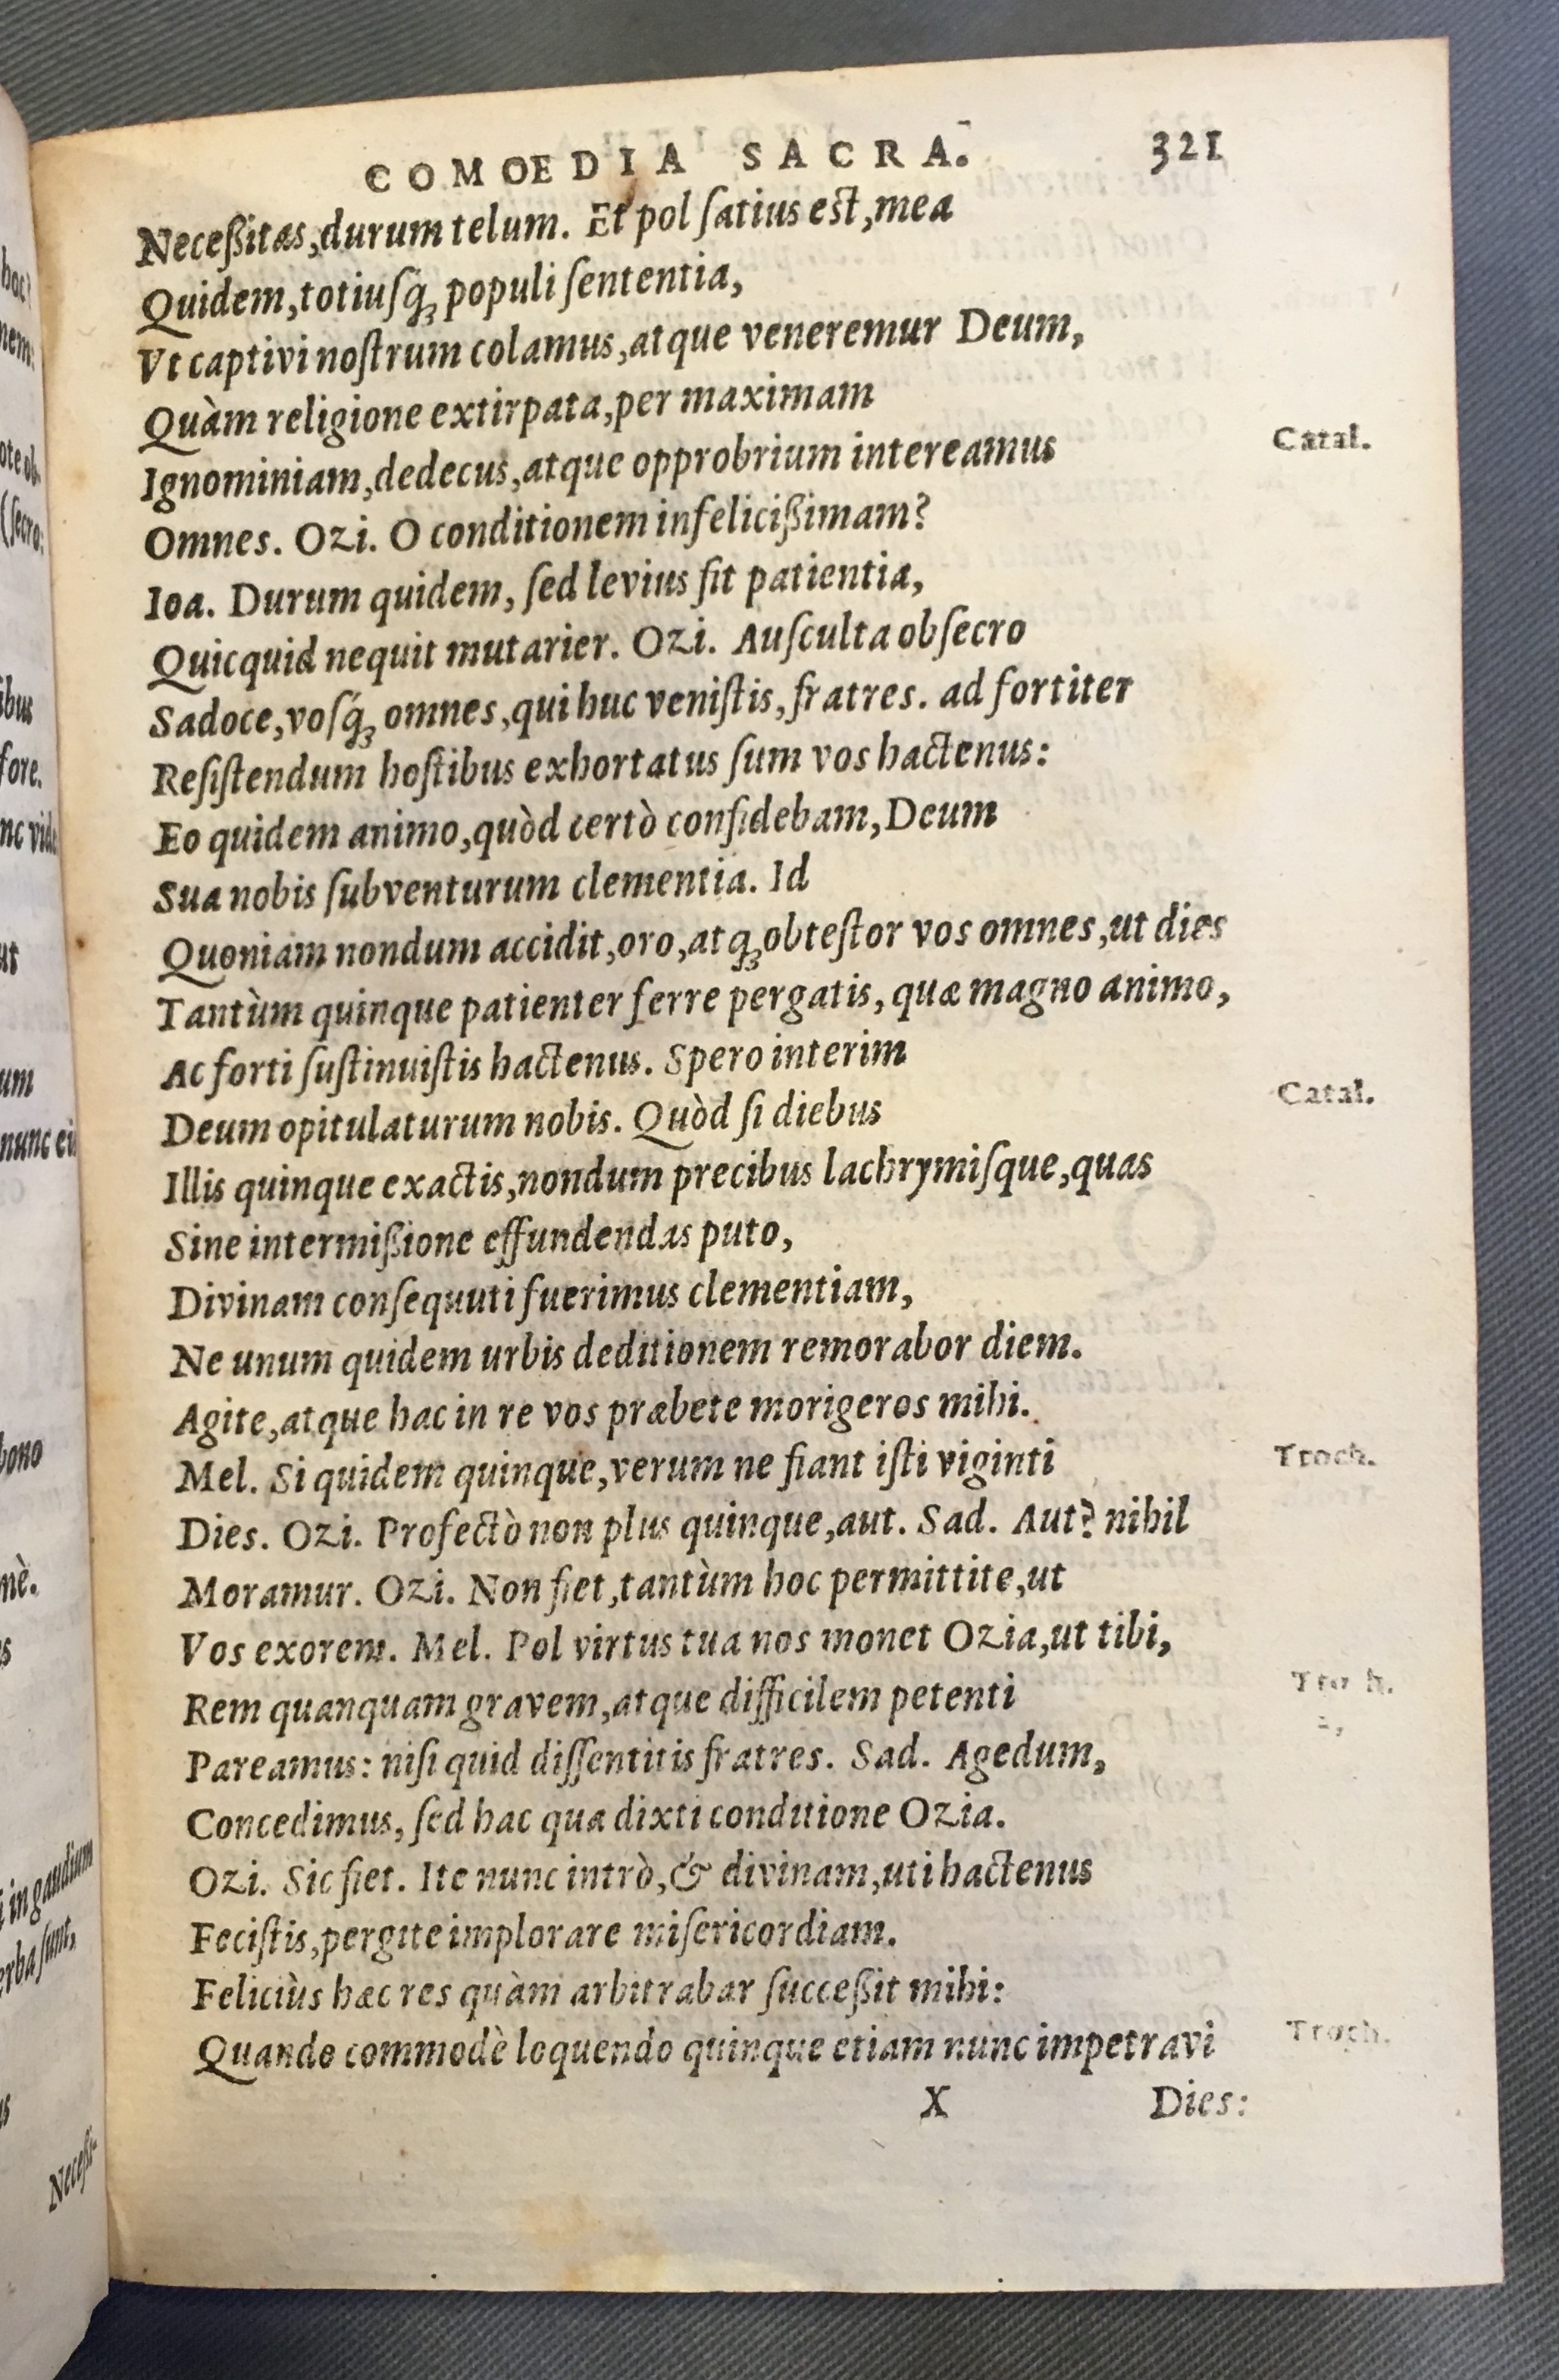 COMOEDIA SACRA. 321
Neceßitas, durum telum. Et pol ſatius est, mea
Quidem, totiuſq́ꝫ populi ſententia,
Vt captivi noſtrum colamus, atque veneremur Deum,
Quàm religione extirpata, per maximam
Ignominiam, dedecus, atque opprobrium intereamus Catal.
Omnes. Ozi. O conditionem infelicißimam?
Ioa. Durum quidem, ſed levius fit patientia,
Quicquid nequit mutarier. Ozi. Auſculta obſecro
Sadoce, voſq́ꝫ omnes, qui huc veniſtis, fratres. ad fortiter
Reſiſtendum hoſtibus exhortatus ſum vos hactenus:
Eo quidem animo, quòd certò confidebam, Deum
Sua nobis ſubventurum clementia. Id
Quoniam nondum accidit, oro, atqꝫ obteſtor vos omnes, ut dies
Tantùm quinque patienter ferre pergatis, quæ magno animo,
Ac forti ſuſtinuiſtis hactenus. Spero interim
Deum opitulaturum nobis. Quòd ſi diebus Catal.
Illis quinque exactis, nondum precibus lachrymiſque, quas
Sine intermißione effundendas puto,
Divinam conſequuti fuerimus clementiam,
Ne unum quidem urbis deditionem remorabor diem.
Agite, atque hac in re vos præbete morigeros mihi.
Mel. Si quidem quinque, verum ne fiant iſti viginti Troch.
Dies. Ozi. Profectò non plus quinque, aut. Sad. Aut? nihil
Moramur. Ozi. Non fiet, tantùm hoc permittite, ut
Vos exorem. Mel. Pol virtus tua nos monet Ozia, ut tibi,
Rem quanquam gravem, atque difficilem petenti Tro h.
Pareamus: niſi quid diſſentitis fratres. Sad. Agedum, 2,
Concedimus, ſed hac qua dixti conditione Ozia.
Ozi. Sic fiet. Ite nunc intrò, & divinam, uti hactenus
Feciſtis, pergite implorare miſericordiam.
Feliciùs hæc res quàm arbitrabar ſucceßit mihi:
Quando commodè loquendo quinque etiam nunc impetravi Troch.
X Dies: